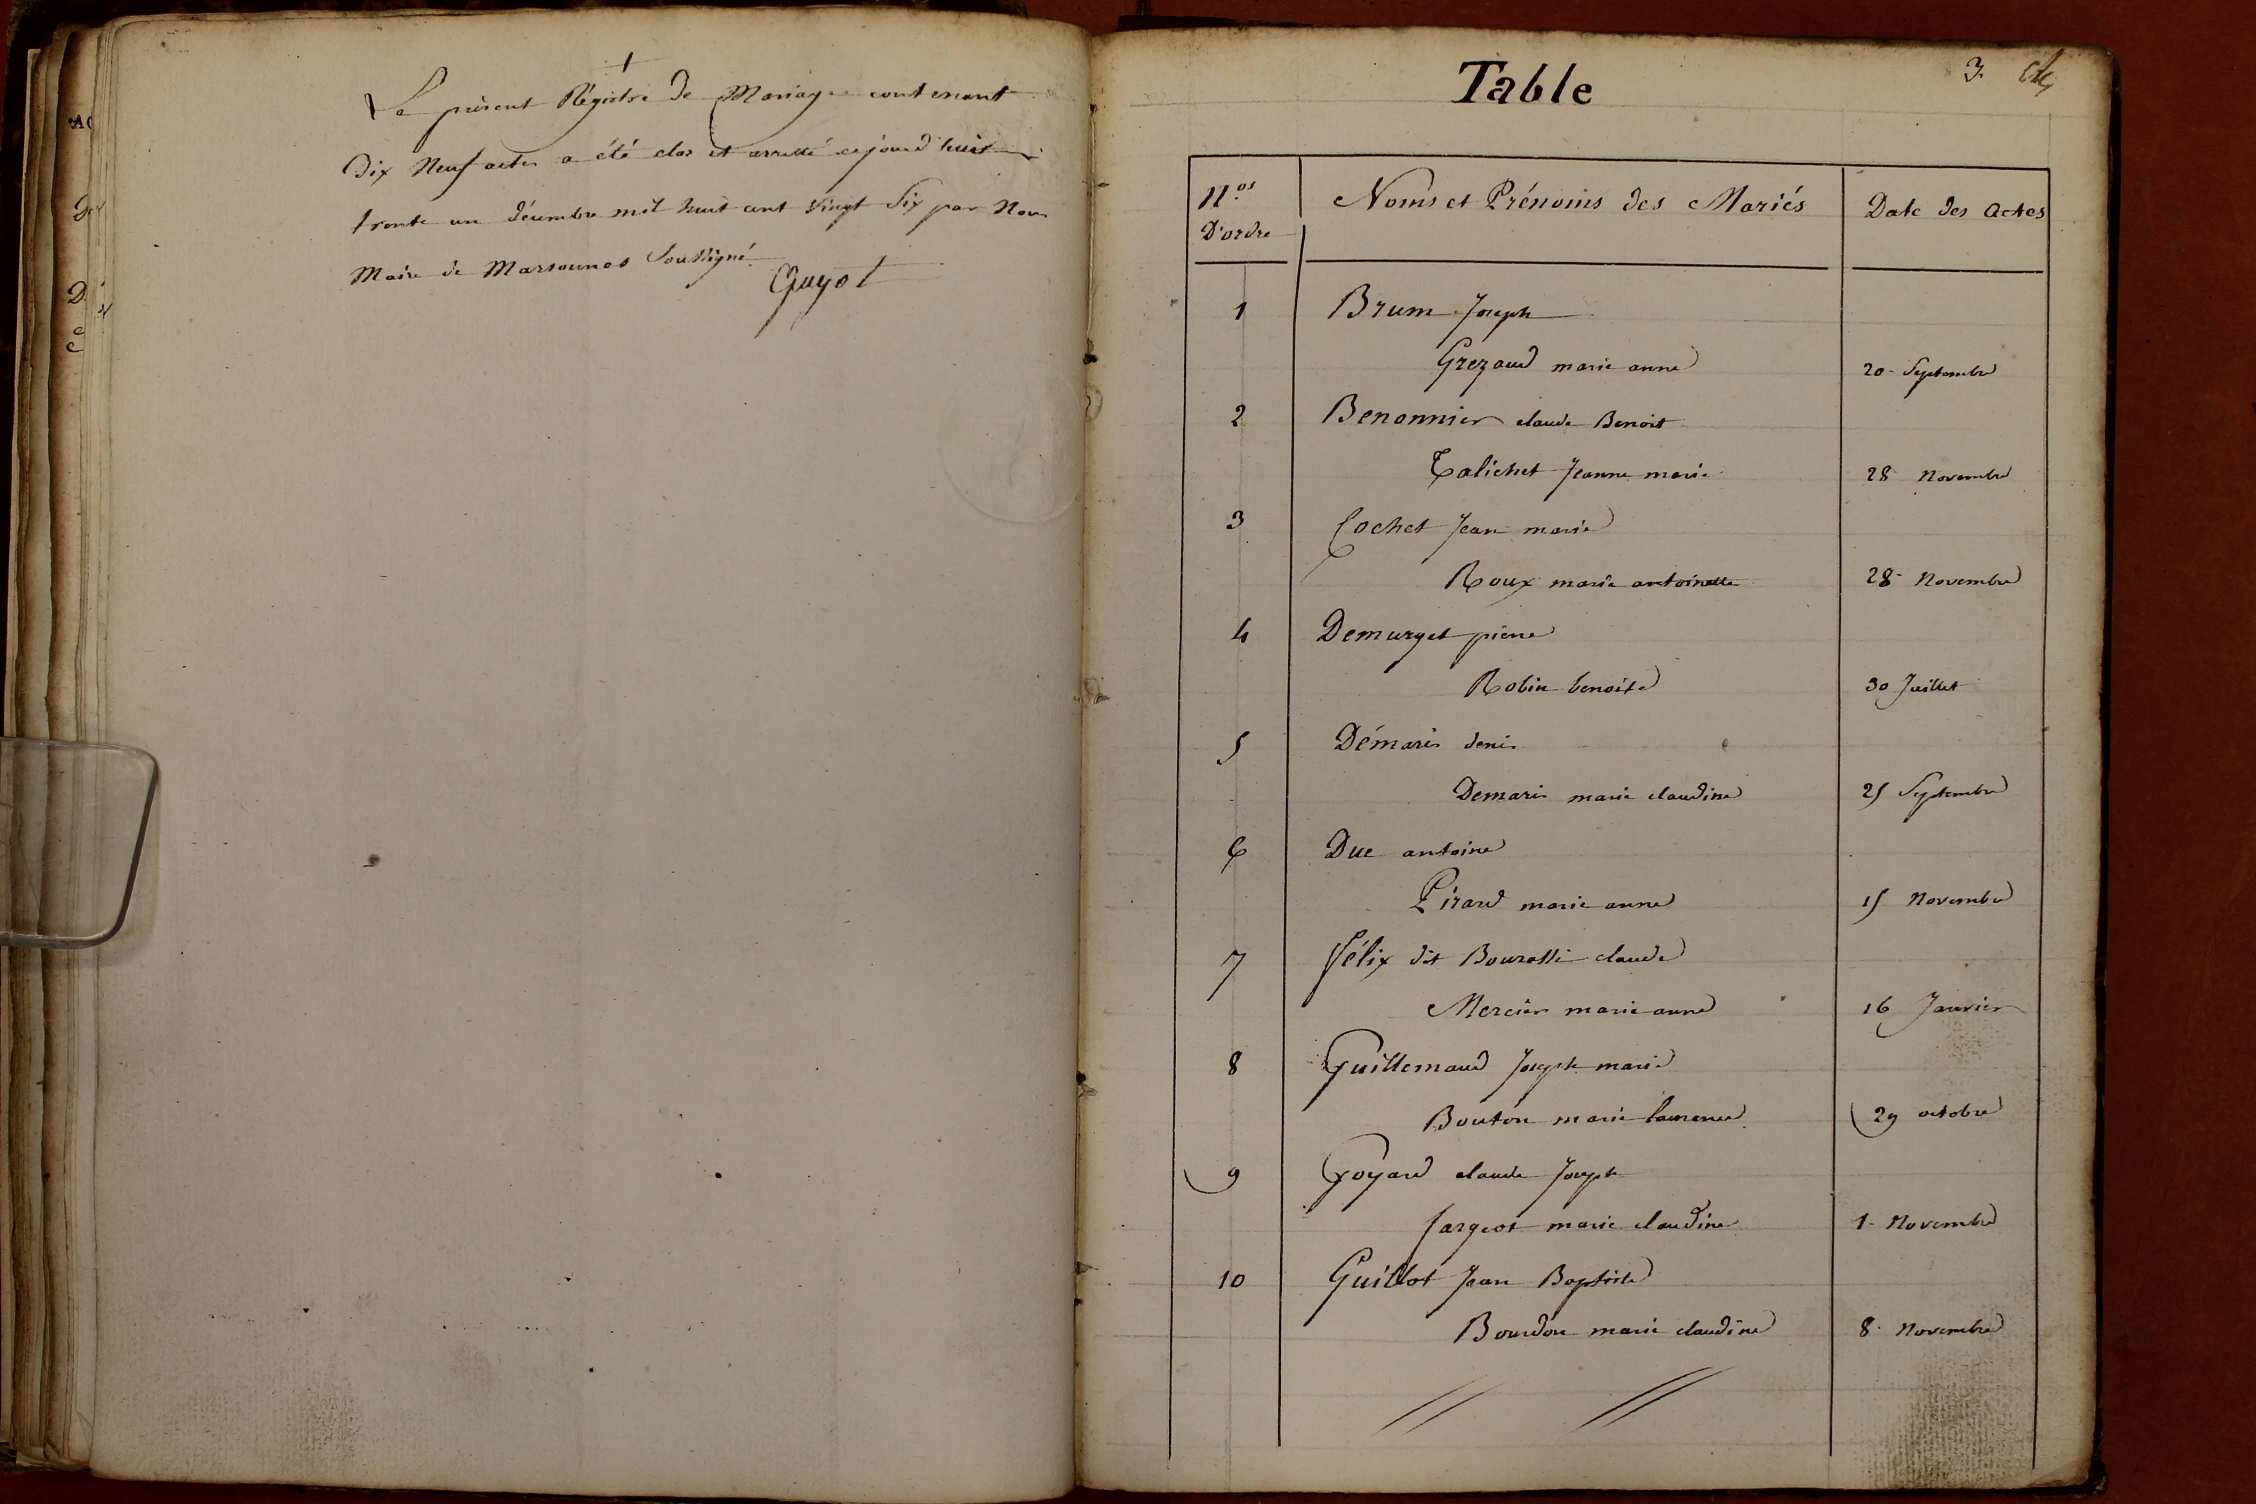 Le présent Régistre de Mariage contenant
Dix Neuf actes a été clos et arretté cejourd'huit
trente un décembre mil huit cent vingt Six par Nous
Maire de Marsonnas Soussigné
Guyot
Table
3.
Nos
D'ordre
Noms et Prénoms des Mariés
Date des Actes
1 Brum Joseph
Grezaud marie anne 20 Septembre
2 Benonnier claude Benoit
Talichet Jeanne marie 28 Novembre
3 Cochet Jean marie
Roux marie antoinette 28 Novembre
4 Demurget pierre
Robin benoite 30 Juillet
5 Démaris denis
Demaris marie claudine 25 Septembre
6 Duc antoine
Pirard marie anne 15 Novembre
7 Félix dit Bourassi claude
Mercier marie anne 16 Janvier
8 Guillemaud Joseph marie
Bouton marie laurence 29 octobre
9 Goyard claude Joseph
fargeot marie claudine 1 Novembre
10 Guillot Jean Baptiste
Bourdon marie claudine 8 Novembre